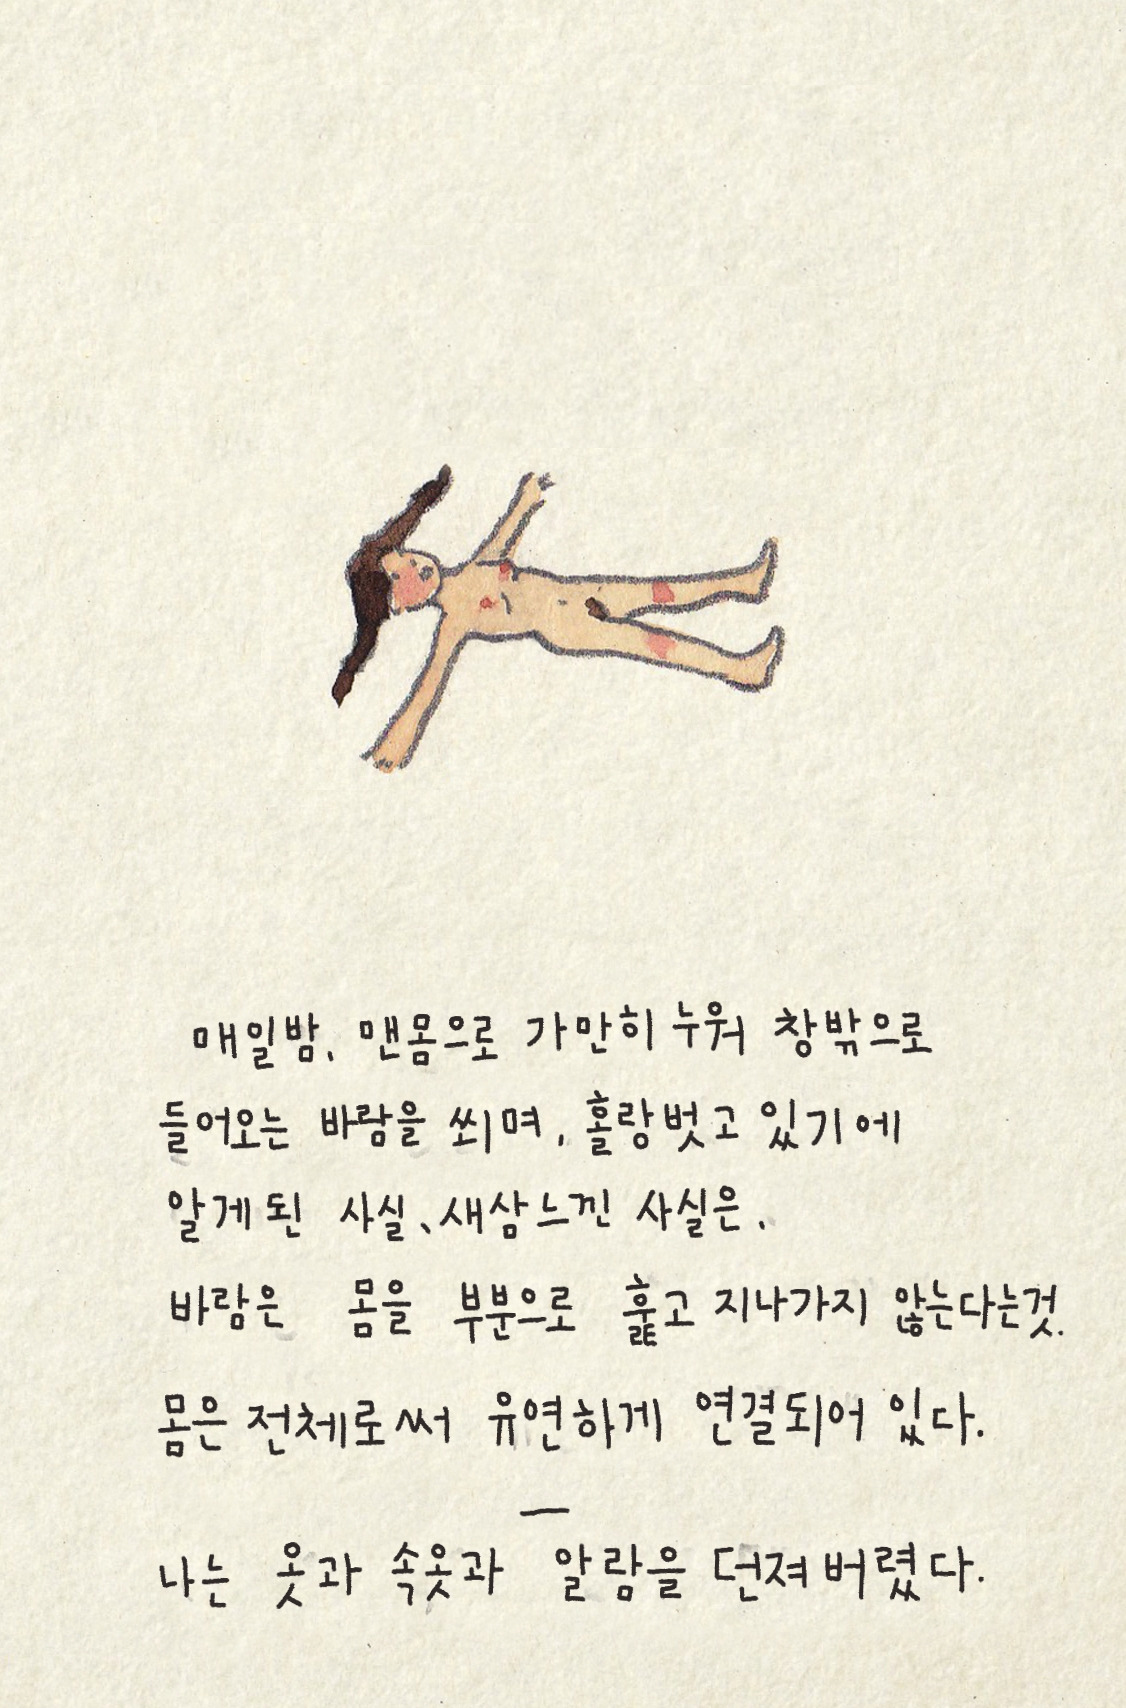 매일밤, 맨몸으로 가만히 누워 창밖으로
들어오는 바람을 쐬며, 홀랑벗고 있기에
알게 된 사실, 새삼 느낀 사실은,
바람은 몸을 부분으로 훑고 지나가지 않는다는것.
몸은 전체로써 유연하게 연결되어 있다.
—
나는 옷과 속옷과 알람을 던져 버렸다.